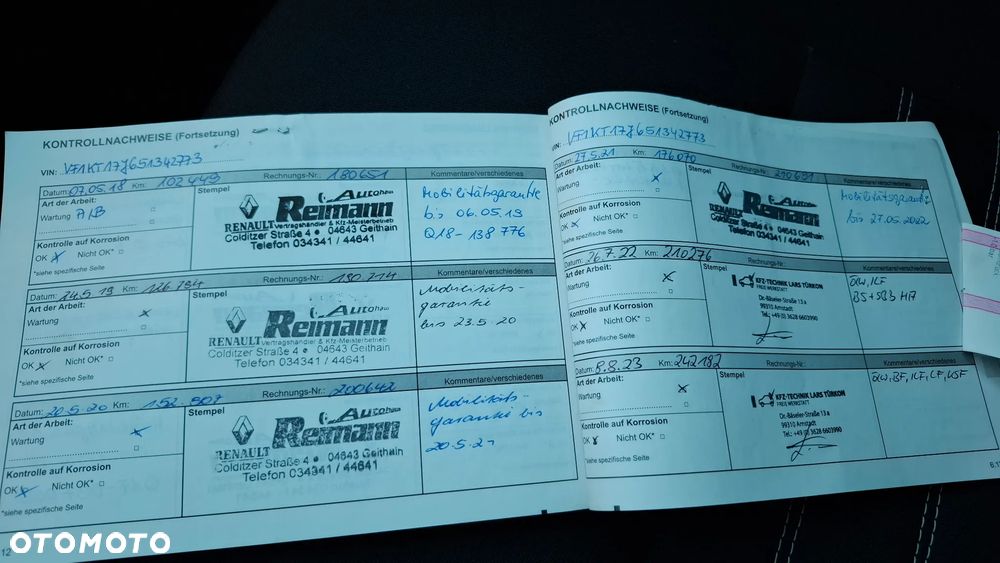 KONTROLLNACHWEISE (Fortsetzung)
VIN: VF1KT17J651342773
Datum: 07.05.18 Km: 102 449 Rechnungs-Nr.: 180651 Kommentare/verschiedenes
Art der Arbeit:
Wartung AKB
Kontrolle auf Korrosion
OK x Nicht OK* □
*siehe spezifische Seite
Stempel
Autohaus
Reimann
RENAULT Vertragshändler & Kfz-Meisterbetrieb
Colditzer Straße 4 • 04643 Geithain
Telefon 034341 / 44641
Mobilitätsgarantie
bis 06.05.19
Q18-138 776
Datum: 24.5.19 Km: 126.794 Rechnungs-Nr.: 190214 Kommentare/verschiedenes
Art der Arbeit:
Wartung x
Kontrolle auf Korrosion
OK x Nicht OK* □
*siehe spezifische Seite
Stempel
Autohaus
Reimann
RENAULT Vertragshändler & Kfz-Meisterbetrieb
Colditzer Straße 4 • 04643 Geithain
Telefon 034341 / 44641
Mobilitäts-
garantie
bis 23.5.20
Datum: 20.5.20 Km: 152.907 Rechnungs-Nr.: 200642 Kommentare/verschiedenes
Art der Arbeit:
Wartung x
Kontrolle auf Korrosion
OK x Nicht OK* □
*siehe spezifische Seite
Stempel
Autohaus
Reimann
RENAULT
Colditzer Straße 4 • 04643 Geithain
Telefon 034341 / 44641
Mobilitäts-
garantie bis
20.5.21
12
KONTROLLNACHWEISE (Fortsetzung)
VIN: VF1KT17J651342773
Datum: 27.5.21 Km: 176070 Rechnungs-Nr.: 210691 Kommentare/verschiedenes
Art der Arbeit:
Wartung x
Kontrolle auf Korrosion
OK x Nicht OK* □
*siehe spezifische Seite
Stempel
Autohaus
Reimann
RENAULT Vertragshändler & Kfz-Meisterbetrieb
Colditzer Straße 4 • 04643 Geithain
Telefon 034341 / 44641
Mobilitätsgarantie
bis 27.05.2022
Datum: 26.7.22 Km: 210276 Rechnungs-Nr.: Kommentare/verschiedenes
Art der Arbeit:
Wartung x
Kontrolle auf Korrosion
OK x Nicht OK* □
*siehe spezifische Seite
Stempel
KFZ-TECHNIK LARS TÜRKON
FREIE WERKSTATT
Dr.-Bäseler-Straße 13 a
99310 Arnstadt
Tel.: +49 (0) 3628 6603990
ÖW, ILF
BS+SB3 HA
Datum: 8.8.23 Km: 242182 Rechnungs-Nr.: Kommentare/verschiedenes
Art der Arbeit:
Wartung x
Kontrolle auf Korrosion
OK x Nicht OK* □
*siehe spezifische Seite
Stempel
KFZ-TECHNIK LARS TÜRKON
FREIE WERKSTATT
Dr.-Bäseler-Straße 13 a
99310 Arnstadt
Tel.: +49 (0) 3628 6603990
ÖW, BF, ILF, LF, KSF
6.1
OTOMOTO